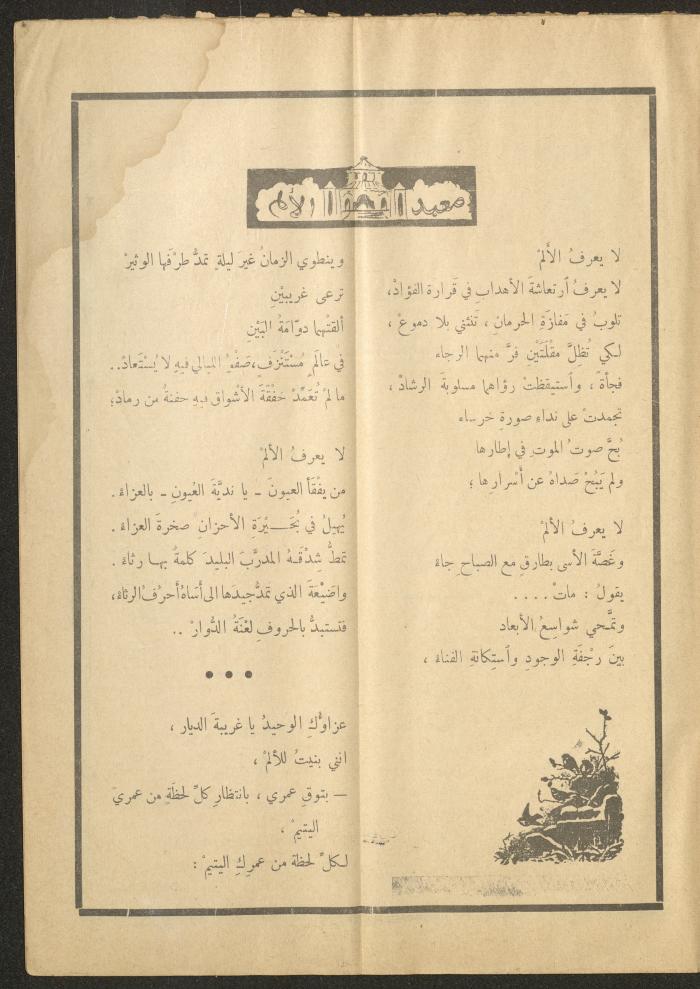 معبد الألم
لا يعرفُ الأَلمْ
لا يعرفُ ٱرتعاشةَ الأهدابِ في قَرارة الفؤادْ،
تلوبُ في مَفازَةِ الحرمانِ ، تَنثني بلا دموعْ ،
لكي تُظِلَّ مقْلَتَيْنِ فرَّ منهما الرجاء
فجأةً ، وٱستيقظتْ رؤاهما مسلوبةَ الرشادْ ،
تجمدتْ على نداءِ صورةٍ خرساء
بُحَّ صوتُ الموتِ في إطارها
ولم يَبُحْ صَداهُ عن أَسْرارها ؛
لا يعرفُ الألمْ
وغَصَّةَ الأسى بطارقٍ مع الصباحِ جاءَ
يقولُ : ماتْ ....
وتمَّحي شواسِعُ الأبعاد
بينَ رَجْفَةِ الوجودِ وٱستِكانةِ الفناءْ ،
وينطوي الزمانُ غيرَ ليلةٍ تمدُّ طرْفَها الوثيرْ
ترعى غريبيْنِ
ألقتْهما دوّامَةُ البَيْنِ
في عالَمٍ مُسْتَنْزَفٍ، صَفْوُ الليالي فيهِ لا يُسْتَعادْ..
ما لمْ تُعَمِّدْ خَفْقَةَ الأشواقِ فيهِ حفنةٌ من رمادْ؛
لا يعرفُ الألمْ
من يفْقَأ العيونَ ـ يا نديَّةَ العُيونِ ـ بالعزاءْ .
يُهيلُ في بُحَيْرَةِ الأحزانِ صخرةَ العزاءْ .
تمطُّ شِدْقَـهُ المدرَّبَ البليدَ كلمةٌ بهـا رثاءْ .
واضَيْعَةَ الذي تَمدُّ جيدَها الى أَساهُ أحرفُ الرثاءْ،
فتستبدُّ بالحروفِ لعْنَةُ الدُّوارْ ..
● ● ●
عزاؤُكِ الوحيدُ يا غريبةَ الديار ،
انني بنيتُ للألمْ ،
— بتوقِ عمري ، بانتظارِ كلِّ لحظَةٍ من عمريَ
اليتيمْ ،
لكلِّ لحظة من عمركِ اليتيمْ :